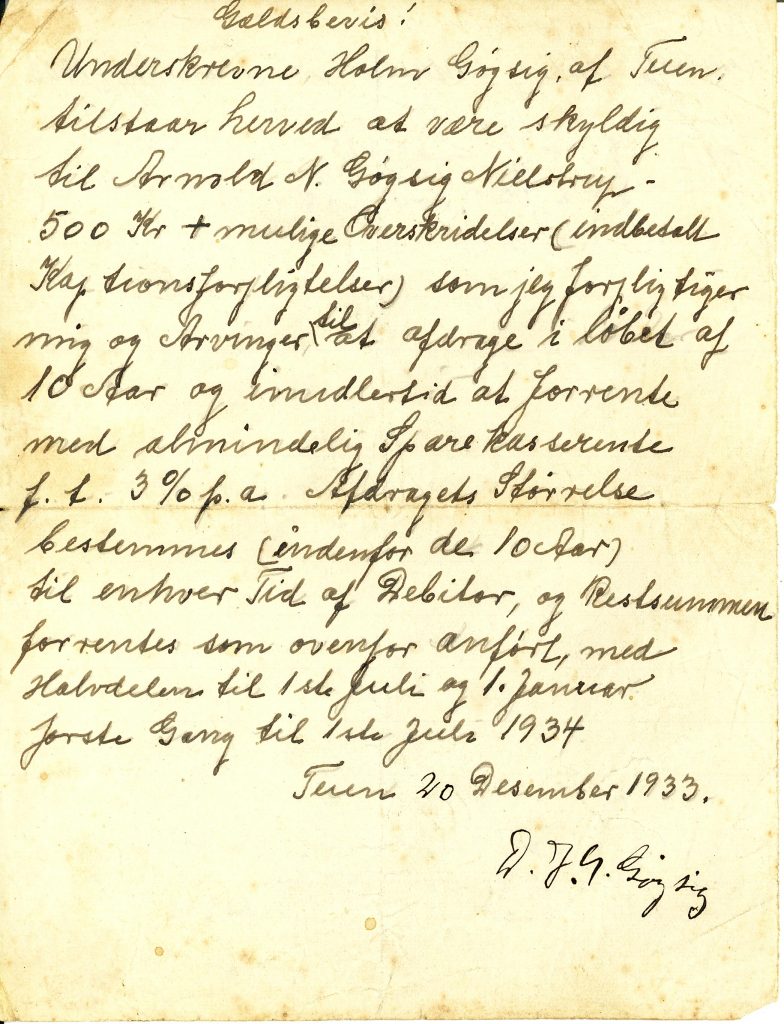 Gældsbevis!
Underskrevne Holm Gøgsig, af Tuen.
tilstaar herved at være skyldig
til Arnold N. Gøgsig Nielstrup -
500 Kr + mulige Overskridelser (indbetalt
Kaptionsforpligtelser) som jeg forpligtiger
mig og Arvinger til at afdrage i løbet af
10 Aar og imidlertid at forrente
med almindelig Sparekasserente
f. t. 3% p.a. Afdragets Størrelse
bestemmes (indenfor de 10 Aar)
til enhver Tid af Debitor, og Restsummen
forrentes som ovenfor anført, med
Halvdelen til 1ste Juli og 1. Januar.
første Gang til 1ste Juli 1934
Tuen 20 Desember 1933.
Gøgsig